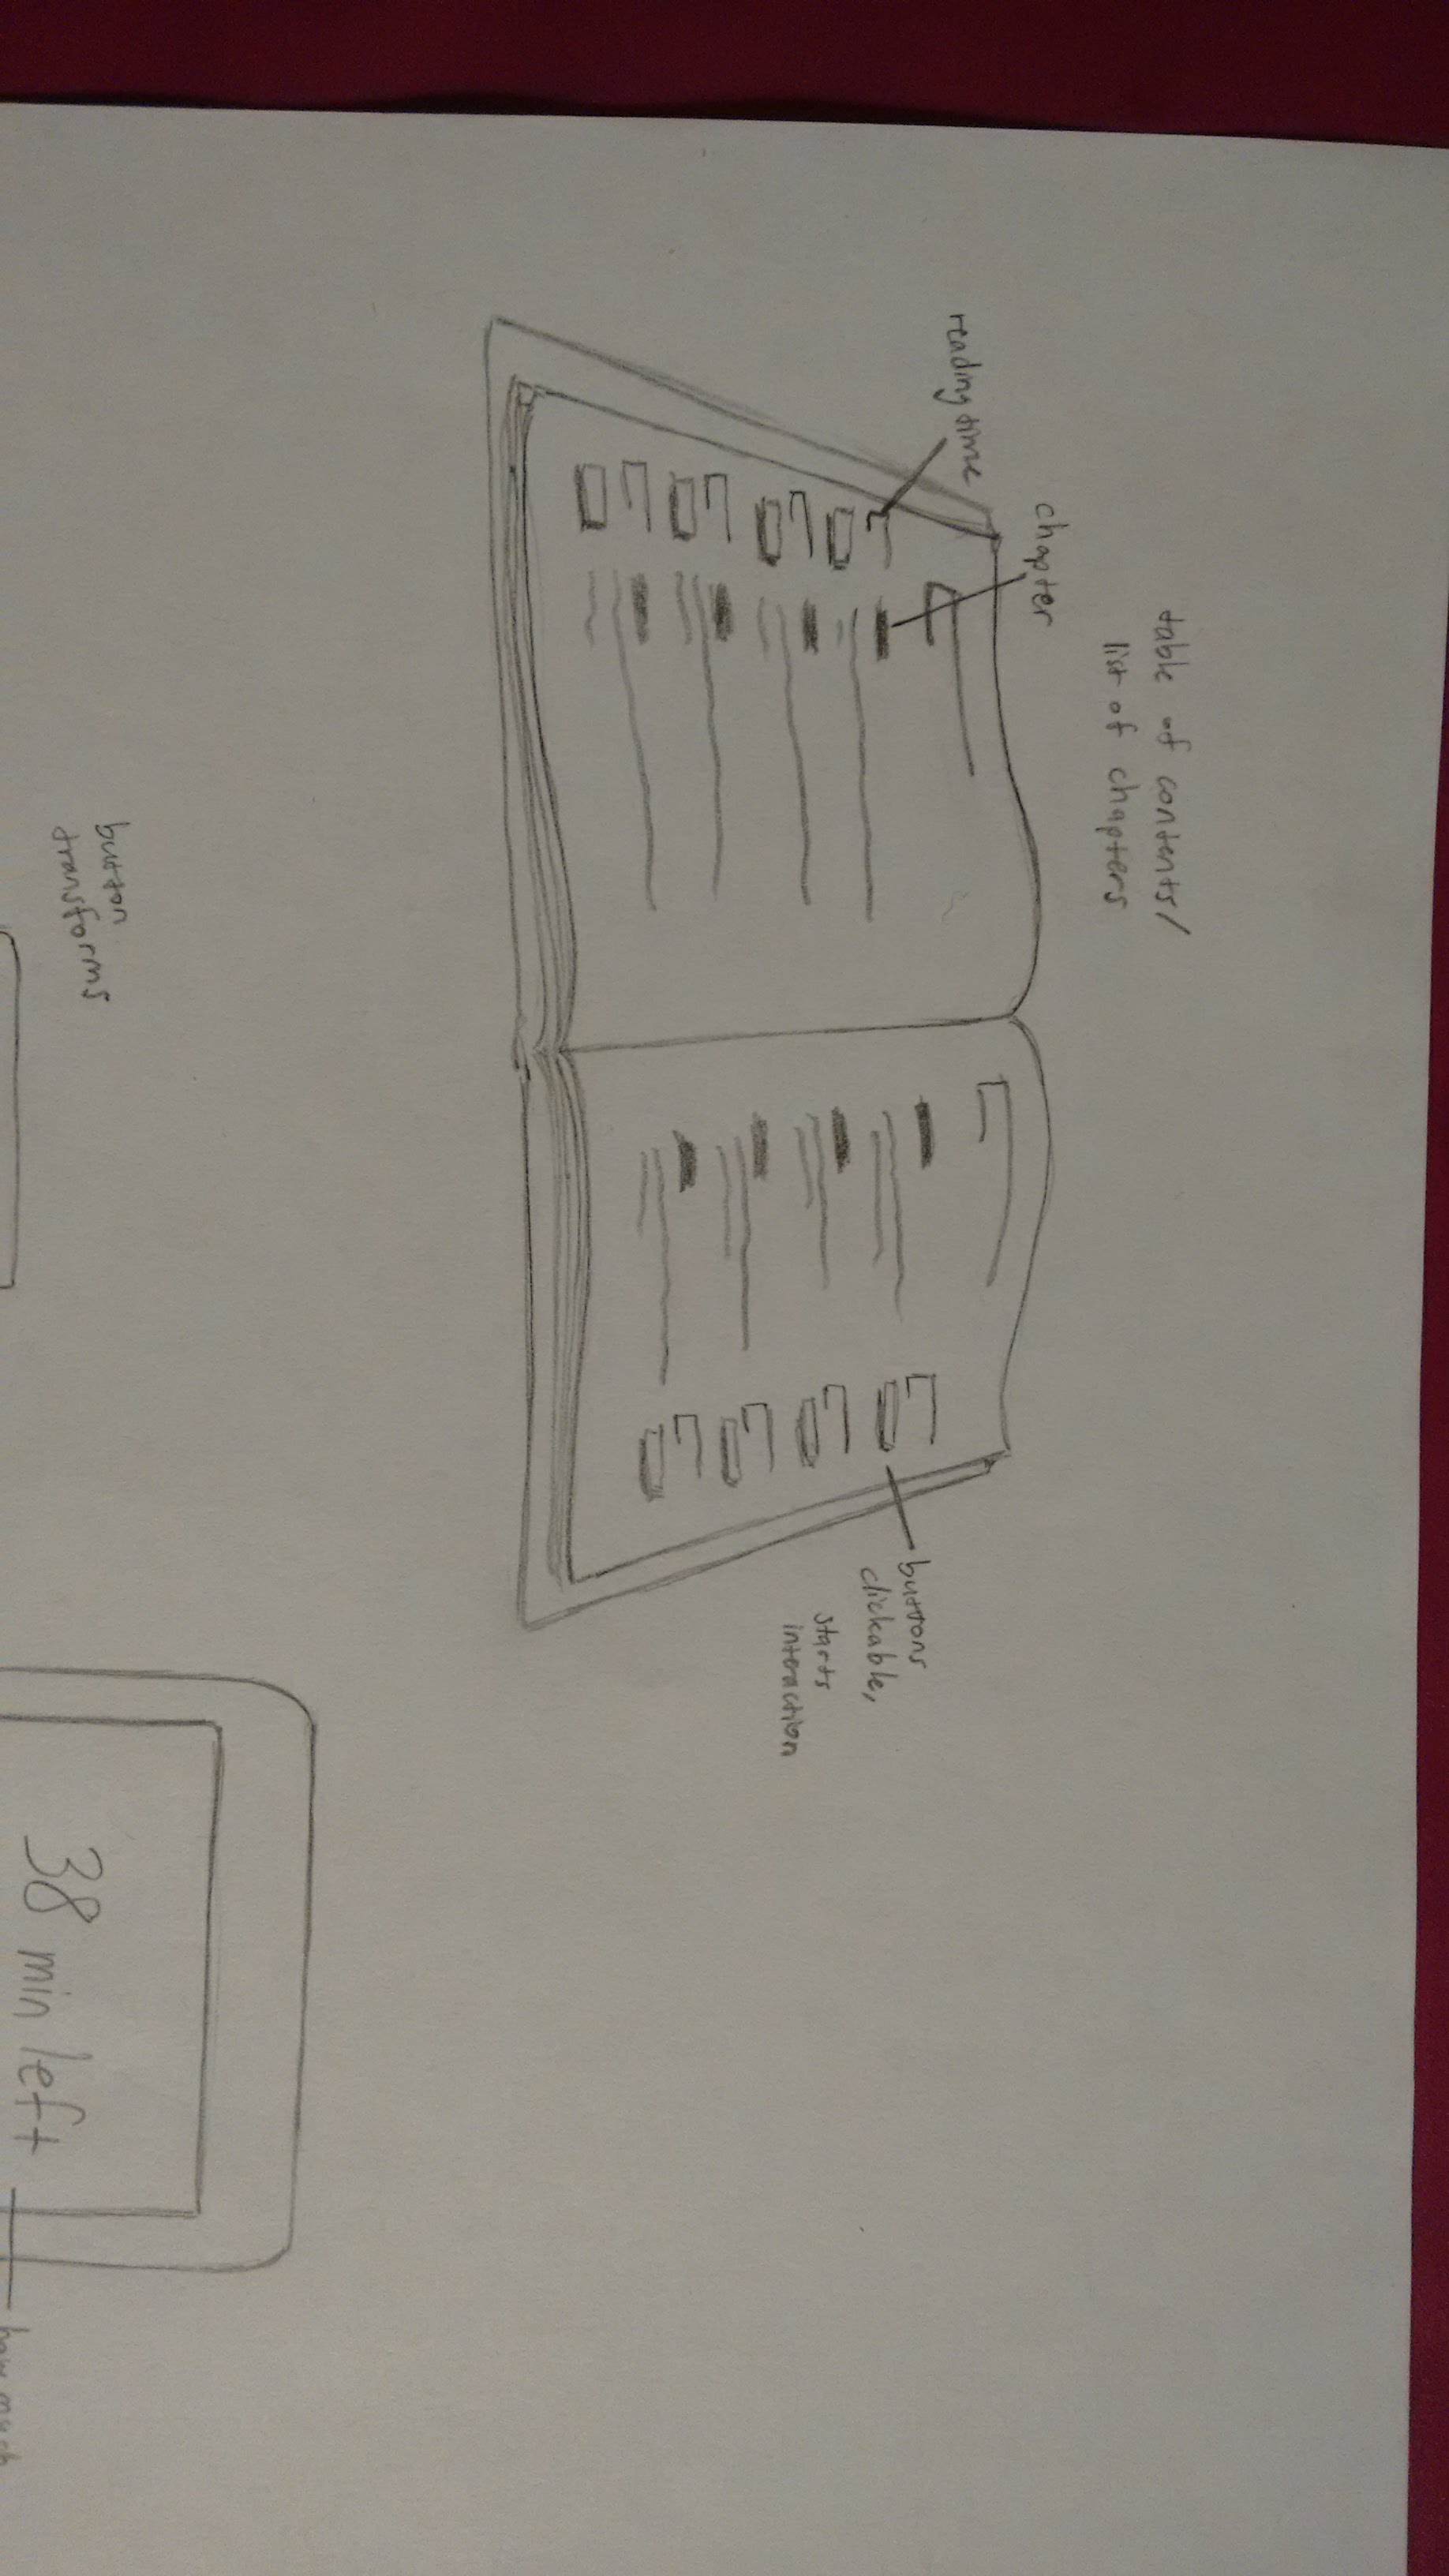 table of contents/
list of chapters
chapter
reading time
buttons
clickable,
starts
interaction
button
transforms
38 min left
how much